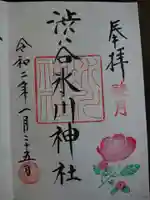 奉拝
睦月
渋谷氷川神社
令和二年一月二十五日